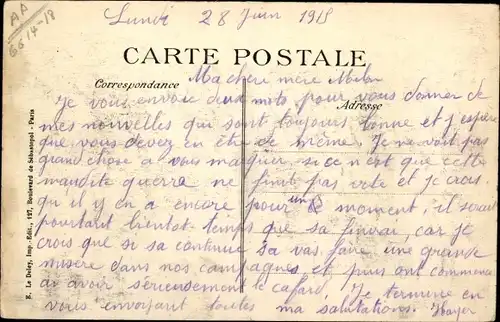 AA
GG 14-18
Lundi 28 Juin 1915
CARTE POSTALE
Correspondance
Ma chère mère
Adresse
Je vous envoie deux mots pour vous donner de
mes nouvelles qui sont toujours bonne et j'espère
que vous devez en etre de même. Je ne voit pas
grand chose a vous marquer, si ce n'est que cette
maudite guerre ne finit pas vite et je crois
qu il y en a encore pour un moment, il serait
pourtant bientot temps que sa finirai, car je
crois que si sa continue sa vas faire une grande
misère dans nos campagnes, et puis ont commence
a avoir sérieusement le cafard. Je termine en
vous envoyant toutes ma salutations.
E. Le Deley, Imp.-Édit., 127, Boulevard de Sébastopol - Paris